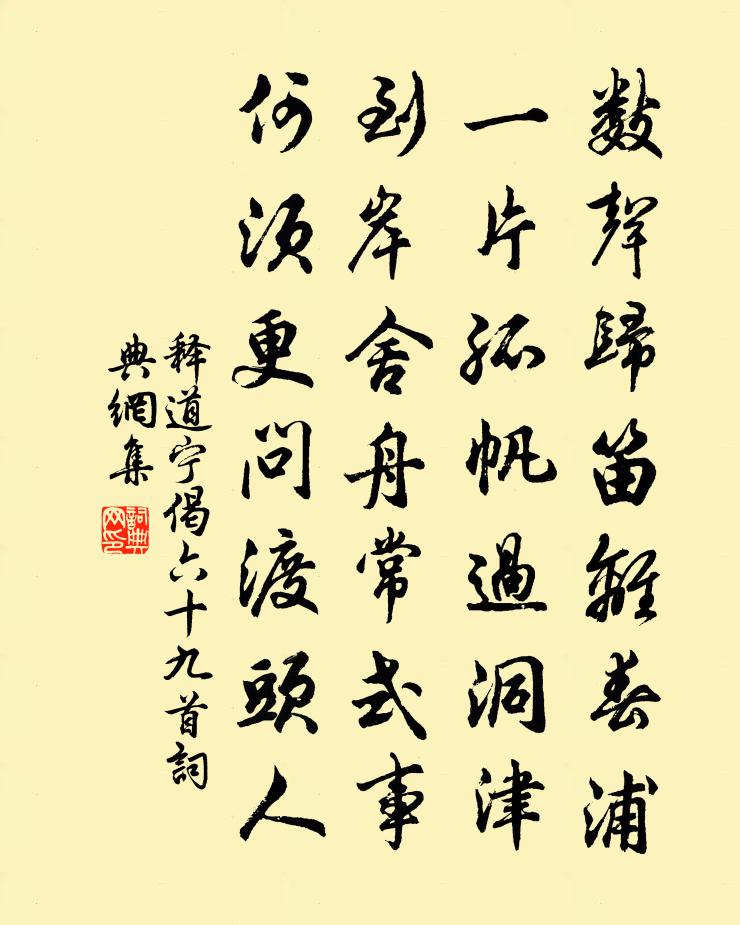 數聲歸笛離春浦
一片孤帆過洞津
到岸舍舟常式事
何須更問渡頭人
释道宁偈六十九首詞
典網集
詞典
网印